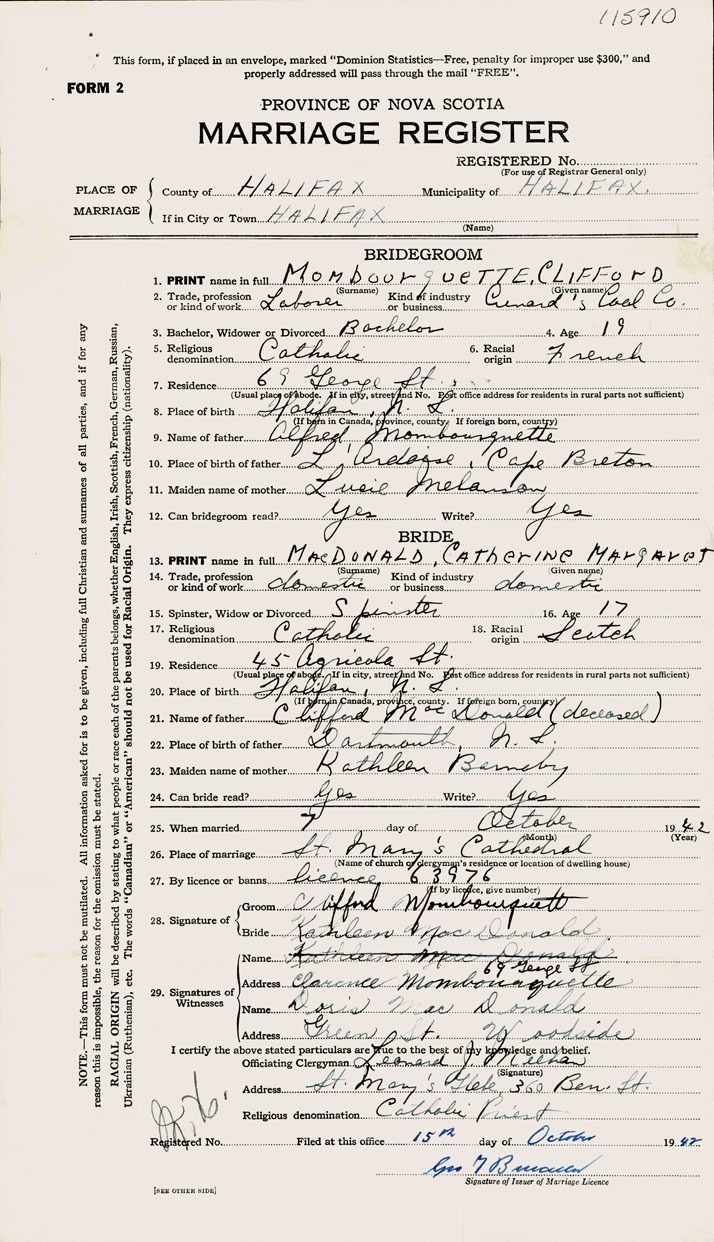 115910
This form, if placed in an envelope, marked "Dominion Statistics—Free, penalty for improper use $300," and
properly addressed will pass through the mail "FREE".
FORM 2
PROVINCE OF NOVA SCOTIA
MARRIAGE REGISTER
REGISTERED No.
(For use of Registrar General only)
PLACE OF MARRIAGE
County of HALIFAX Municipality of HALIFAX.
If in City or Town HALIFAX
(Name)
BRIDEGROOM
1. PRINT name in full MOMBOURQUETTE, CLIFFORD
(Surname) (Given name)
2. Trade, profession or kind of work Laborer Kind of industry or business Cunard's Coal Co.
3. Bachelor, Widower or Divorced Bachelor 4. Age 19
5. Religious denomination Catholic 6. Racial origin French
7. Residence 69 George St.
(Usual place of abode. If in city, street and No. Post office address for residents in rural parts not sufficient)
8. Place of birth Halifax, N.S.
(If born in Canada, province, county. If foreign born, country)
9. Name of father Alfred Mombourquette
10. Place of birth of father L'Ardoise, Cape Breton
11. Maiden name of mother Lucie Melanson
12. Can bridegroom read? Yes Write? Yes
BRIDE
13. PRINT name in full MACDONALD, CATHERINE MARGARET
(Surname) (Given name)
14. Trade, profession or kind of work domestic Kind of industry or business domestic
15. Spinster, Widow or Divorced Spinster 16. Age 17
17. Religious denomination Catholic 18. Racial origin Scotch
19. Residence 45 Agricola St.
(Usual place of abode. If in city, street and No. Post office address for residents in rural parts not sufficient)
20. Place of birth Halifax, N.S.
(If born in Canada, province, county. If foreign born, country)
21. Name of father Clifford MacDonald (deceased)
22. Place of birth of father Dartmouth, N.S.
23. Maiden name of mother Kathleen Barnaby
24. Can bride read? Yes Write? Yes
25. When married 7 day of October 1942
(Month) (Year)
26. Place of marriage St. Mary's Cathedral
(Name of church or clergyman's residence or location of dwelling house)
27. By licence or banns licence 63976
(If by licence, give number)
28. Signature of
Groom Clifford Mombourquett
Bride Kathleen MacDonald
29. Signatures of Witnesses
Name Kathleen MacDonald
69 George St
Address Clarence Mombourquette
Name Doris MacDonald
Address Green St. Woodside
I certify the above stated particulars are true to the best of my knowledge and belief.
Officiating Clergyman Leonard J.
(Signature)
Address St. Mary's Glebe, 360 Ben. St.
Religious denomination Catholic Priest
Registered No. Filed at this office 15th day of October 1942
Signature of Issuer of Marriage Licence
[SEE OTHER SIDE]
NOTE.—This form must not be mutilated. All information asked for is to be given, including full Christian and surnames of all parties, and if for any
reason this is impossible, the reason for the omission must be stated.
RACIAL ORIGIN will be described by stating to what people or race each of the parents belongs, whether English, Irish, Scottish, French, German, Russian,
Ukrainian (Ruthenian), etc. The words "Canadian" or "American" should not be used for Racial Origin. They express citizenship (nationality).